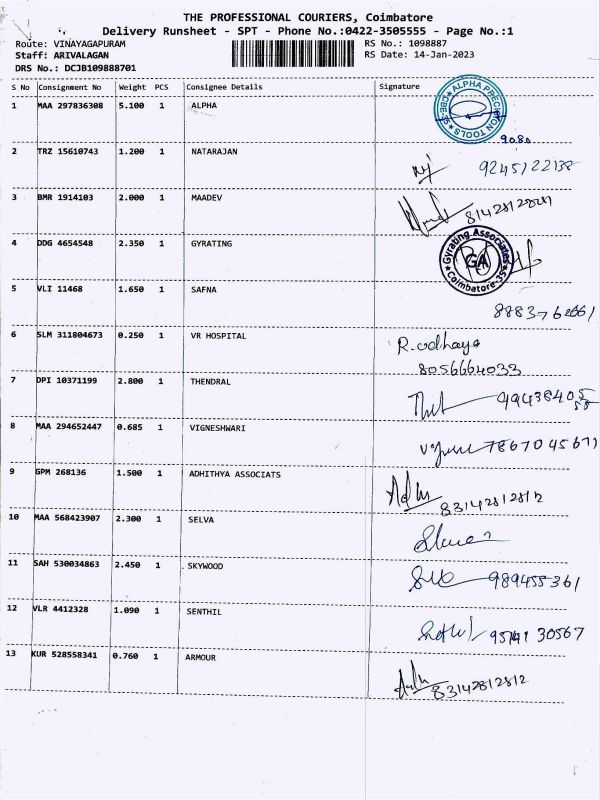 THE PROFESSIONAL COURIERS, Coimbatore
Delivery Runsheet - SPT - Phone No.:0422-3505555 - Page No.:1
Route: VINAYAGAPURAM RS No.: 1098887
Staff: ARIVALAGAN RS Date: 14-Jan-2023
DRS No.: DCJB109888701
S No Consignment No Weight PCS Consignee Details Signature
1 MAA 297836308 5.100 1 ALPHA
ALPHA PRECISION TOOLS
9080
2 TRZ 15610743 1.200 1 NATARAJAN
9245122138
3 BMR 1914103 2.000 1 MAADEV
4 DDG 4654548 2.350 1 GYRATING
Gyrating Associates
GA
Coimbatore-35
5 VLI 11468 1.650 1 SAFNA
6 SLM 311804673 0.250 1 VR HOSPITAL
R. udhaya
8056664033
7 DPI 10371199 2.800 1 THENDRAL
8 MAA 294652447 0.685 1 VIGNESHWARI
9 GPM 268136 1.500 1 ADHITHYA ASSOCIATS
83142812812
10 MAA 568423907 2.300 1 SELVA
11 SAH 530034863 2.450 1 SKYWOOD
989455361
12 VLR 4412328 1.090 1 SENTHIL
13 KUR 528558341 0.760 1 ARMOUR
83142812812